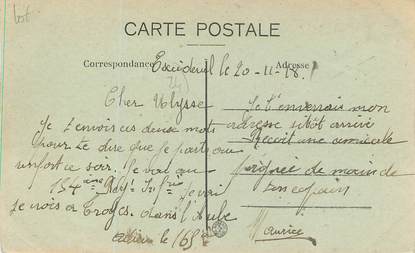 lot
CARTE POSTALE
Correspondance
Adresse
Excideuil le 20-11-18
Cher Ulysse
Je t'envois ces deux mots
pour te dire que je parts au
renfort ce soir. Je vai au
154 ème Rég. Inf rie je vai
je vois a Troyes dans l'Aube
le 163
Je t'enverrais mon
adresse sitôt arrivé
Reçoit une amicale
poignée de main de
ton copain
Maurice